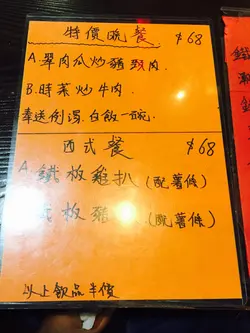 特價晚餐 $68
A.翠肉瓜炒豬頸肉.
B.時菜炒牛肉.
奉送例湯.白飯一碗.
西式餐 $68
A.鐵板雞扒(配薯條)
板豬 (配薯條)
以上飲品半價
鐵